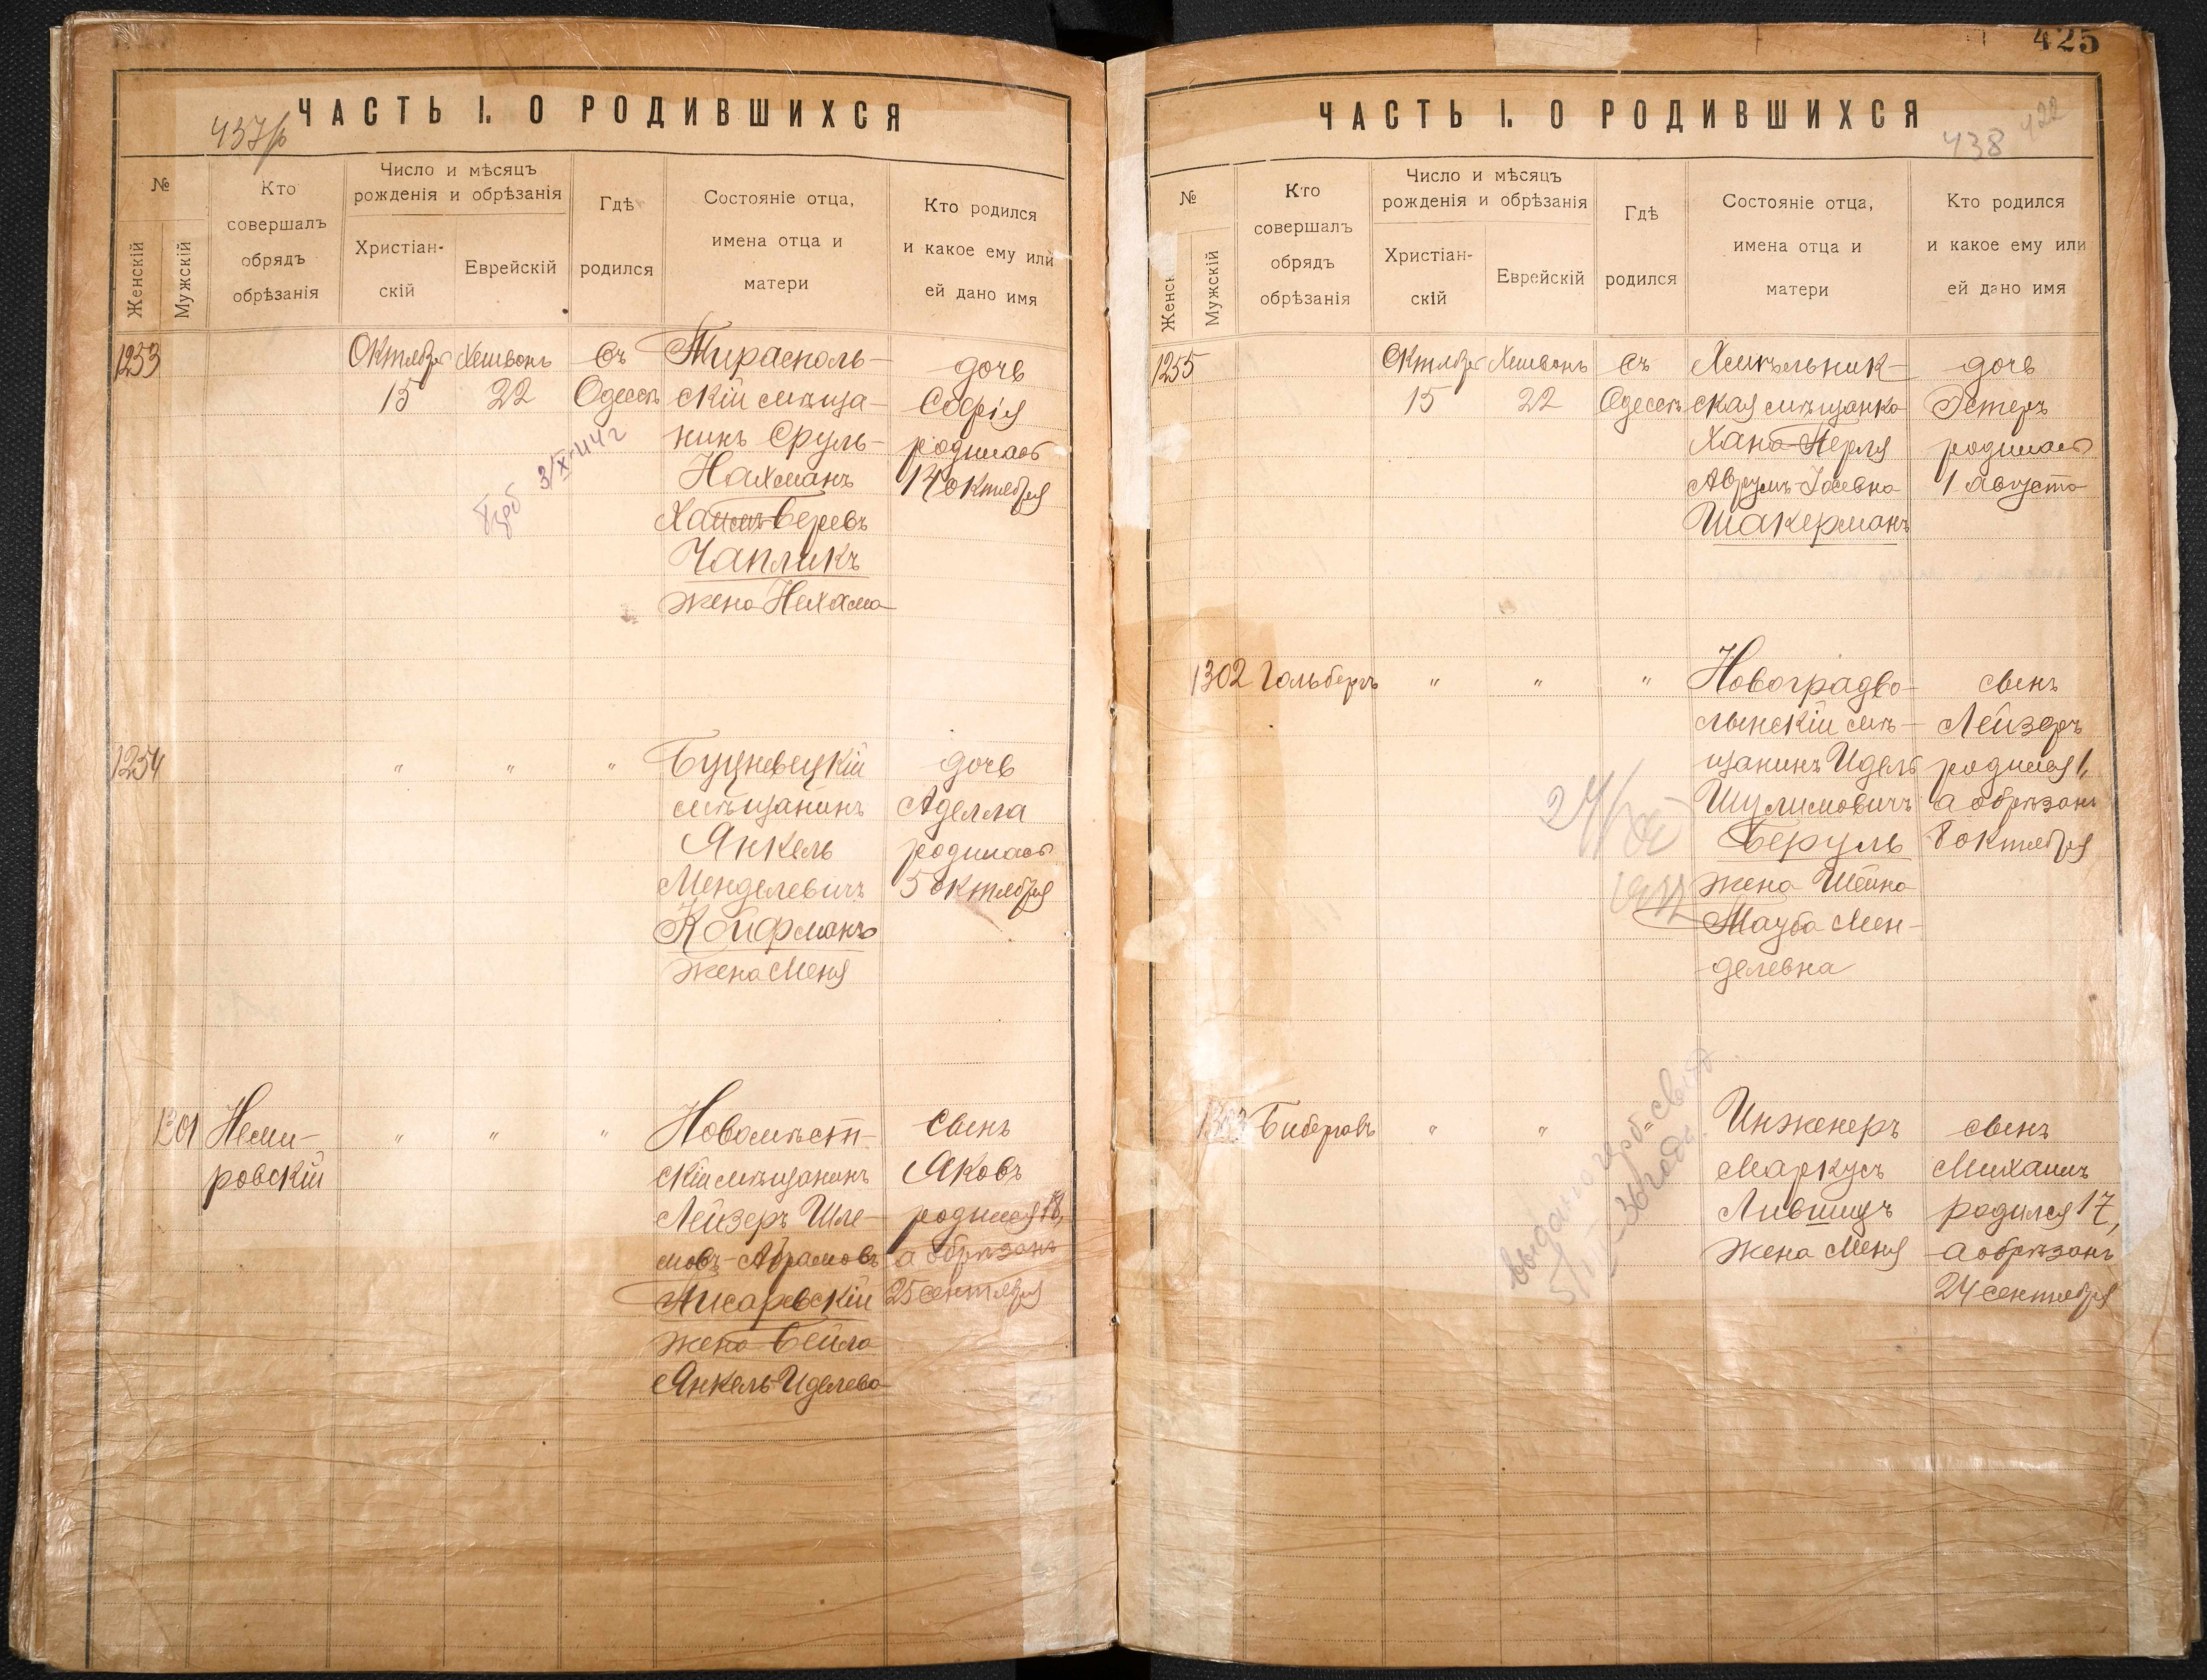 ЧАСТЬ I. О РОДИВШИХСЯ
437/б
№
Женскій
Мужскій
Кто
совершалъ
обрядъ
обрѣзанія
Число и мѣсяцъ
рожденія и обрѣзанія
Христіан-
скій
Еврейскій
Гдѣ
родился
Состояніе отца,
имена отца и
матери
Кто родился
и какое ему или
ей дано имя
1253
Октября
15
Хешвонъ
22
Въ
Одессѣ
Тирасполь-
скій мѣща-
нинъ Сруль-
Нахманъ
Хаимъ-Беревъ
Чапликъ
жена Нехама
дочь
Софія
родилась
14 октября
1254
" " "
Буцневецкій
мѣщанинъ
Янкель
Менделевичъ
Койфманъ
жена Меня
дочь
Аделла
родилась
5 октября
1301
Неми-
ровскій
" " "
Новомѣст-
скій мѣщанинъ
Лейзеръ Шле-
мовъ-Абрамовъ
Писаревскій
жена Бейла
Янкель-Иделева
сынъ
Яковъ
родился 18,
а обрѣзанъ
25 сентября
425
ЧАСТЬ I. О РОДИВШИХСЯ
438
422
№
Женск
Мужскій
Кто
совершалъ
обрядъ
обрѣзанія
Число и мѣсяцъ
рожденія и обрѣзанія
Христіан-
скій
Еврейскій
Гдѣ
родился
Состояніе отца,
имена отца и
матери
Кто родился
и какое ему или
ей дано имя
1255
Октября
15
Хешвонъ
22
Въ
Одессѣ
Хмѣльник-
ская мѣщанка
Хана-Перля
Аврумъ-Іосевна
Шакерманъ
дочь
Эстеръ
родилась
1 августа
1302
Гольбергъ
" " "
Новоградво-
лынскій мѣ-
щанинъ Идель
Шулимовичъ
Беруль
жена Шейна
Тауба Мен-
делевна
сынъ
Лейзеръ
родился 1,
а обрѣзанъ
8 октября
1303
Биберовъ
" "
выдано герб-свид
5/II-36 года
Инженеръ
Маркусъ
Лившицъ
жена Меня
сынъ
Михаилъ
родился 17,
а обрѣзанъ
24 сентября